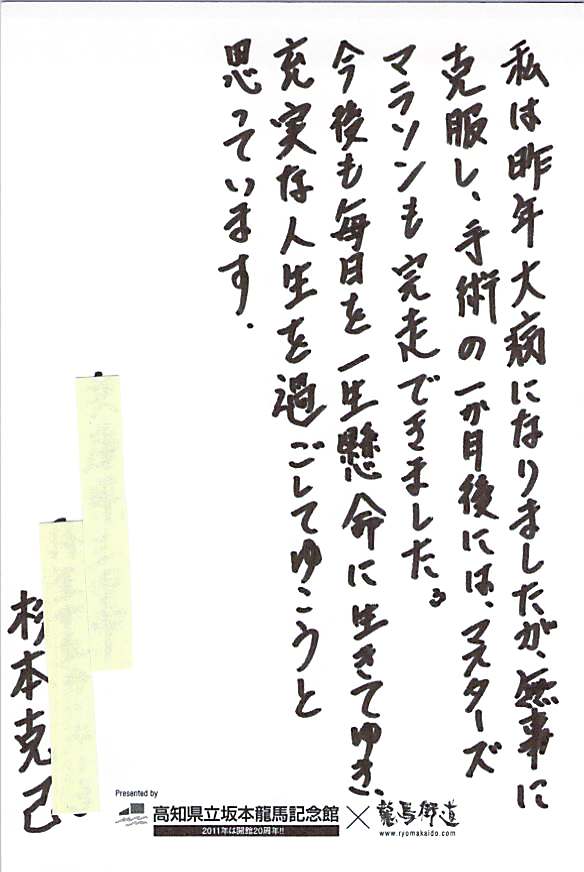 私は昨年大病になりましたが、無事に
克服し、手術の一か月後には、マスターズ
マラソンも完走できました。
今後も毎日を一生懸命に生きてゆき、
充実な人生を過ごしてゆこうと
思っています．
杉本克己
Presented by
高知県立坂本龍馬記念館
2011年は開館20周年!!
×
龍馬街道
www.ryomakaido.com